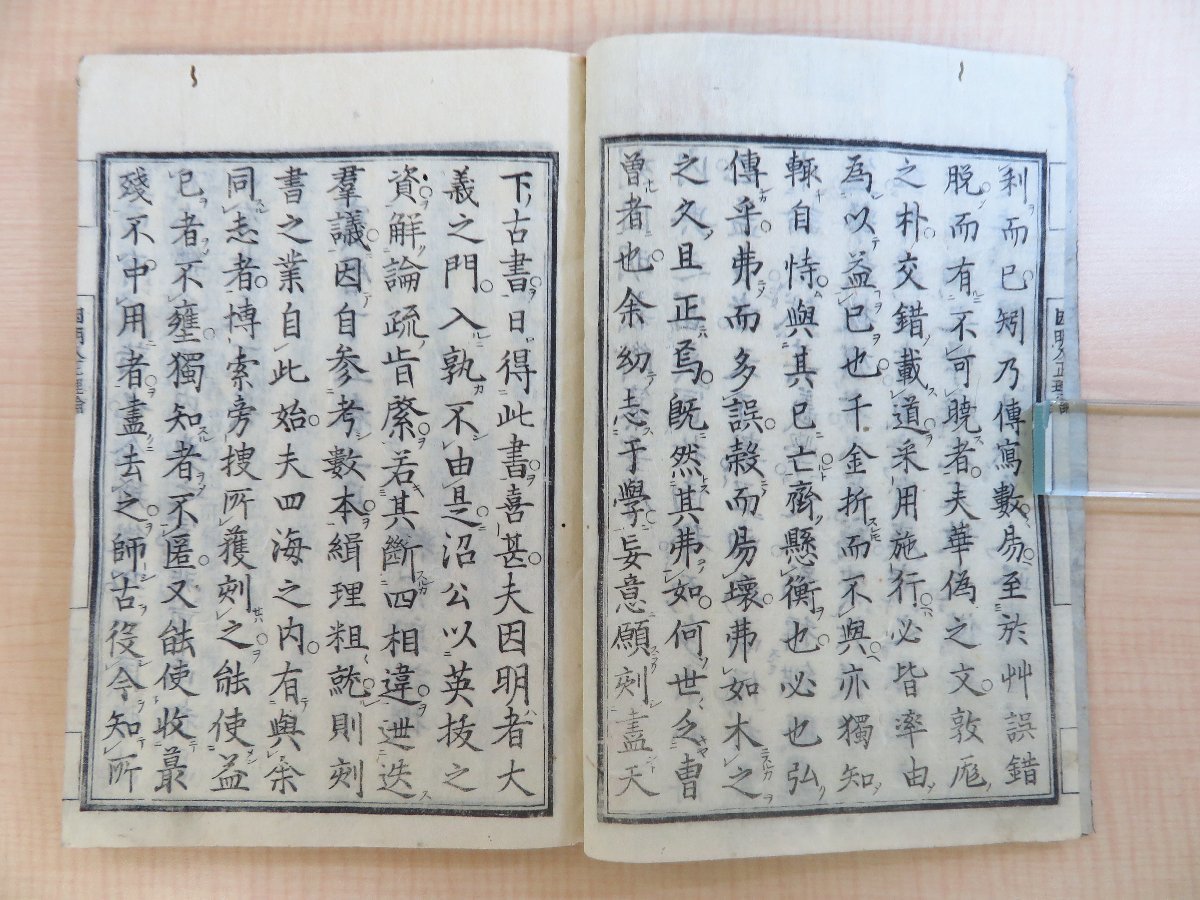 利而已矧乃傳寫數易至於艸誤錯
脫而有不可曉者夫華偽之文敦厖
之朴交錯載道采用施行必皆率由
為以益已也千金折而不與亦獨知
輙自恃與其已亡齊懸衡也必也弘
傳乎弗而多誤殽而易壞弗如木之
之久且正焉既然其弗如何世乏曹
曽者也余幼志于學妄意願刻盡天
下古書日得此書喜甚夫因明者大
義之門入孰不由是沼公以英拔之
資解論疏肯綮若其斷四相違迭迭
羣議因自參考數本緝理粗就則刻
書之業自此始夫四海之内有與余
同志者博索旁搜所獲刻之能使益
已者不壅獨知者不匿又能使收最
殘不中用者盡去之師古役今知所